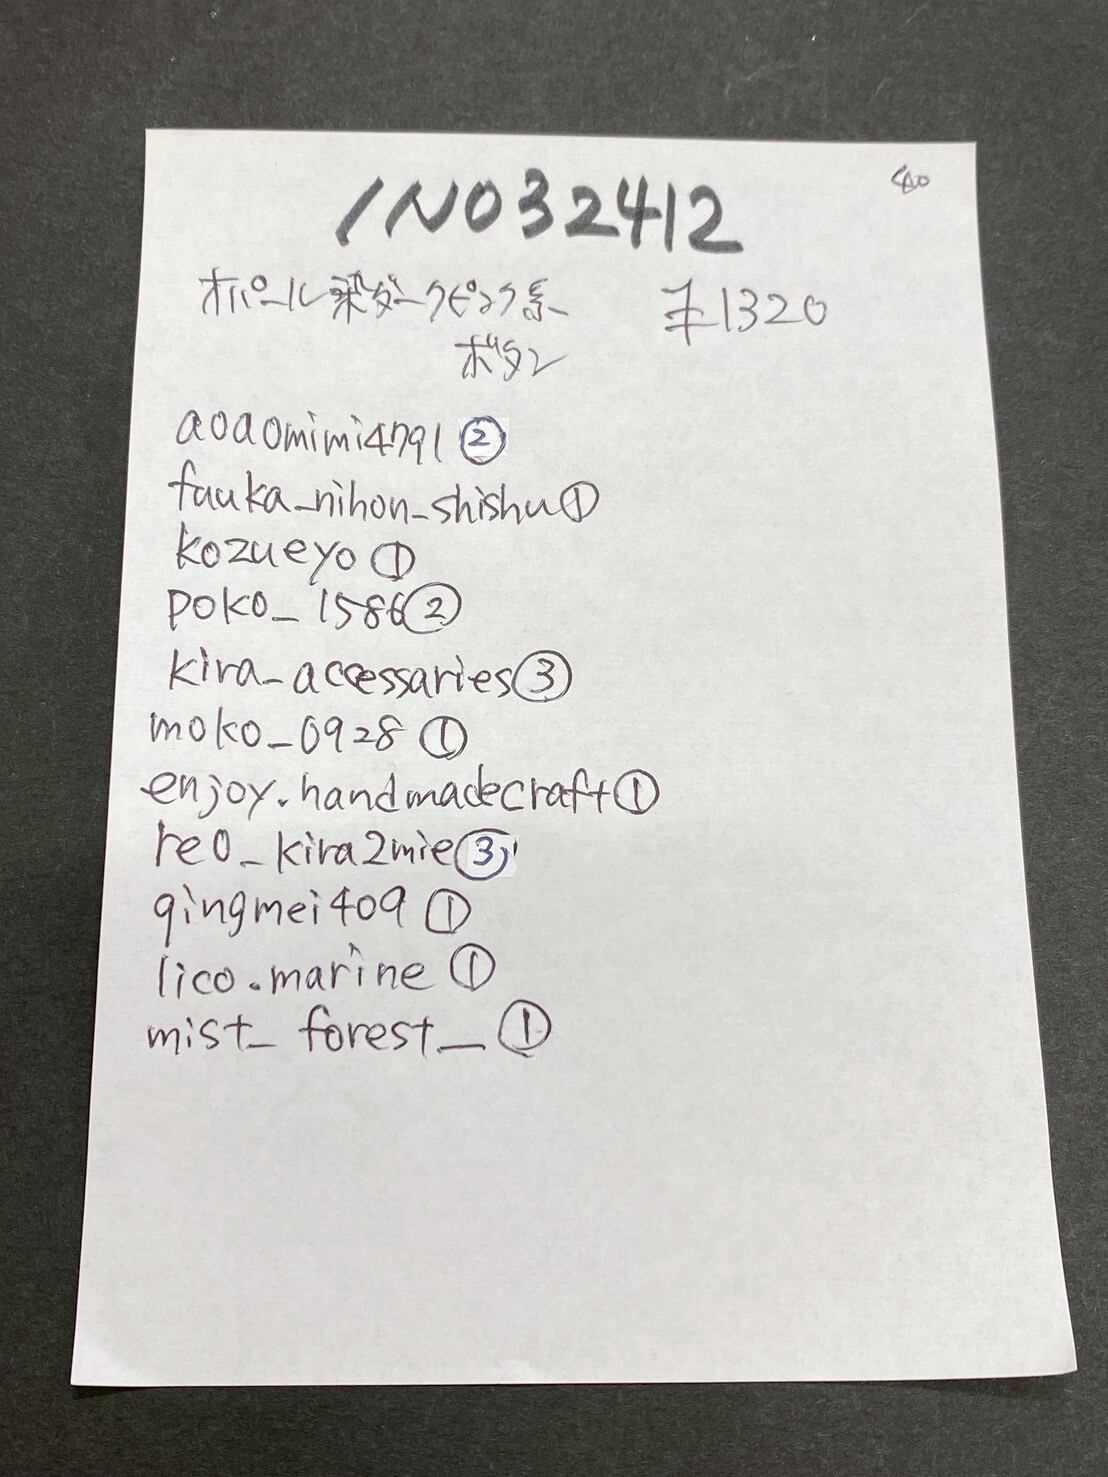 INO32412
オパール染ダークピンク系 ¥1320
ボタン
aoaomimi4791②
fuuka_nihon_shishu①
kozueyo①
poko_1586②
kira_accessaries③
moko_0928①
enjoy.handmadecraft①
reo_kira2mie③
qingmei409①
lico.marine①
mist_forest_①